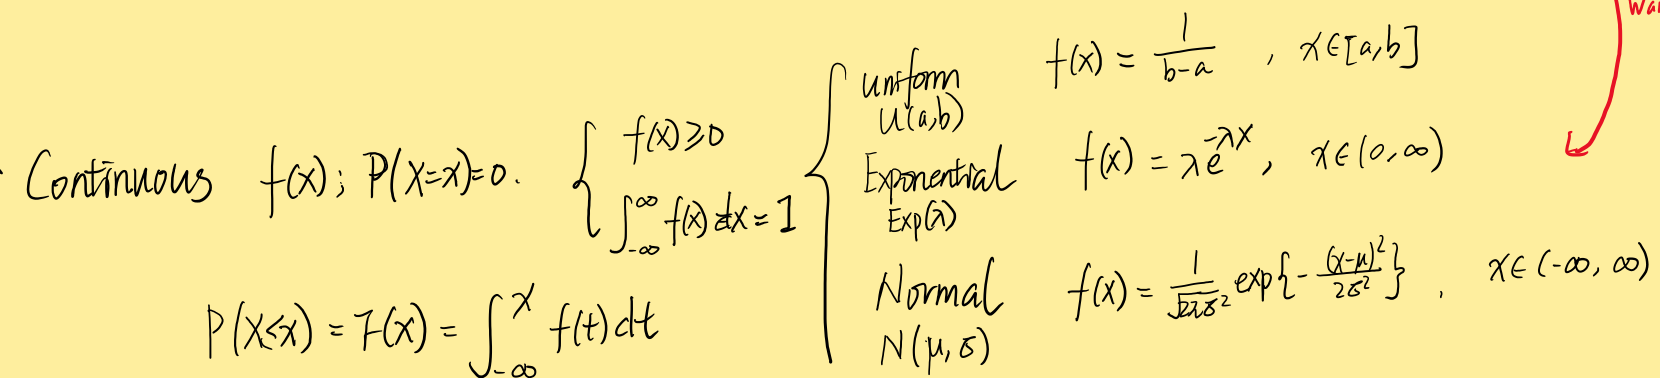 Wa
Continuous f(x); P(X=x)=0. { f(x) ≥ 0
∫_{-∞}^{∞} f(x) dx = 1
P(X≤x) = F(x) = ∫_{-∞}^{x} f(t) dt
{ Uniform f(x) = 1/(b-a) , x∈[a,b]
U(a,b)
Exponential f(x) = λe^{-λx}, x∈(0,∞)
Exp(λ)
Normal f(x) = 1/√(2πσ²) exp{-(x-μ)²/(2σ²)} , x∈(-∞,∞)
N(μ,σ)